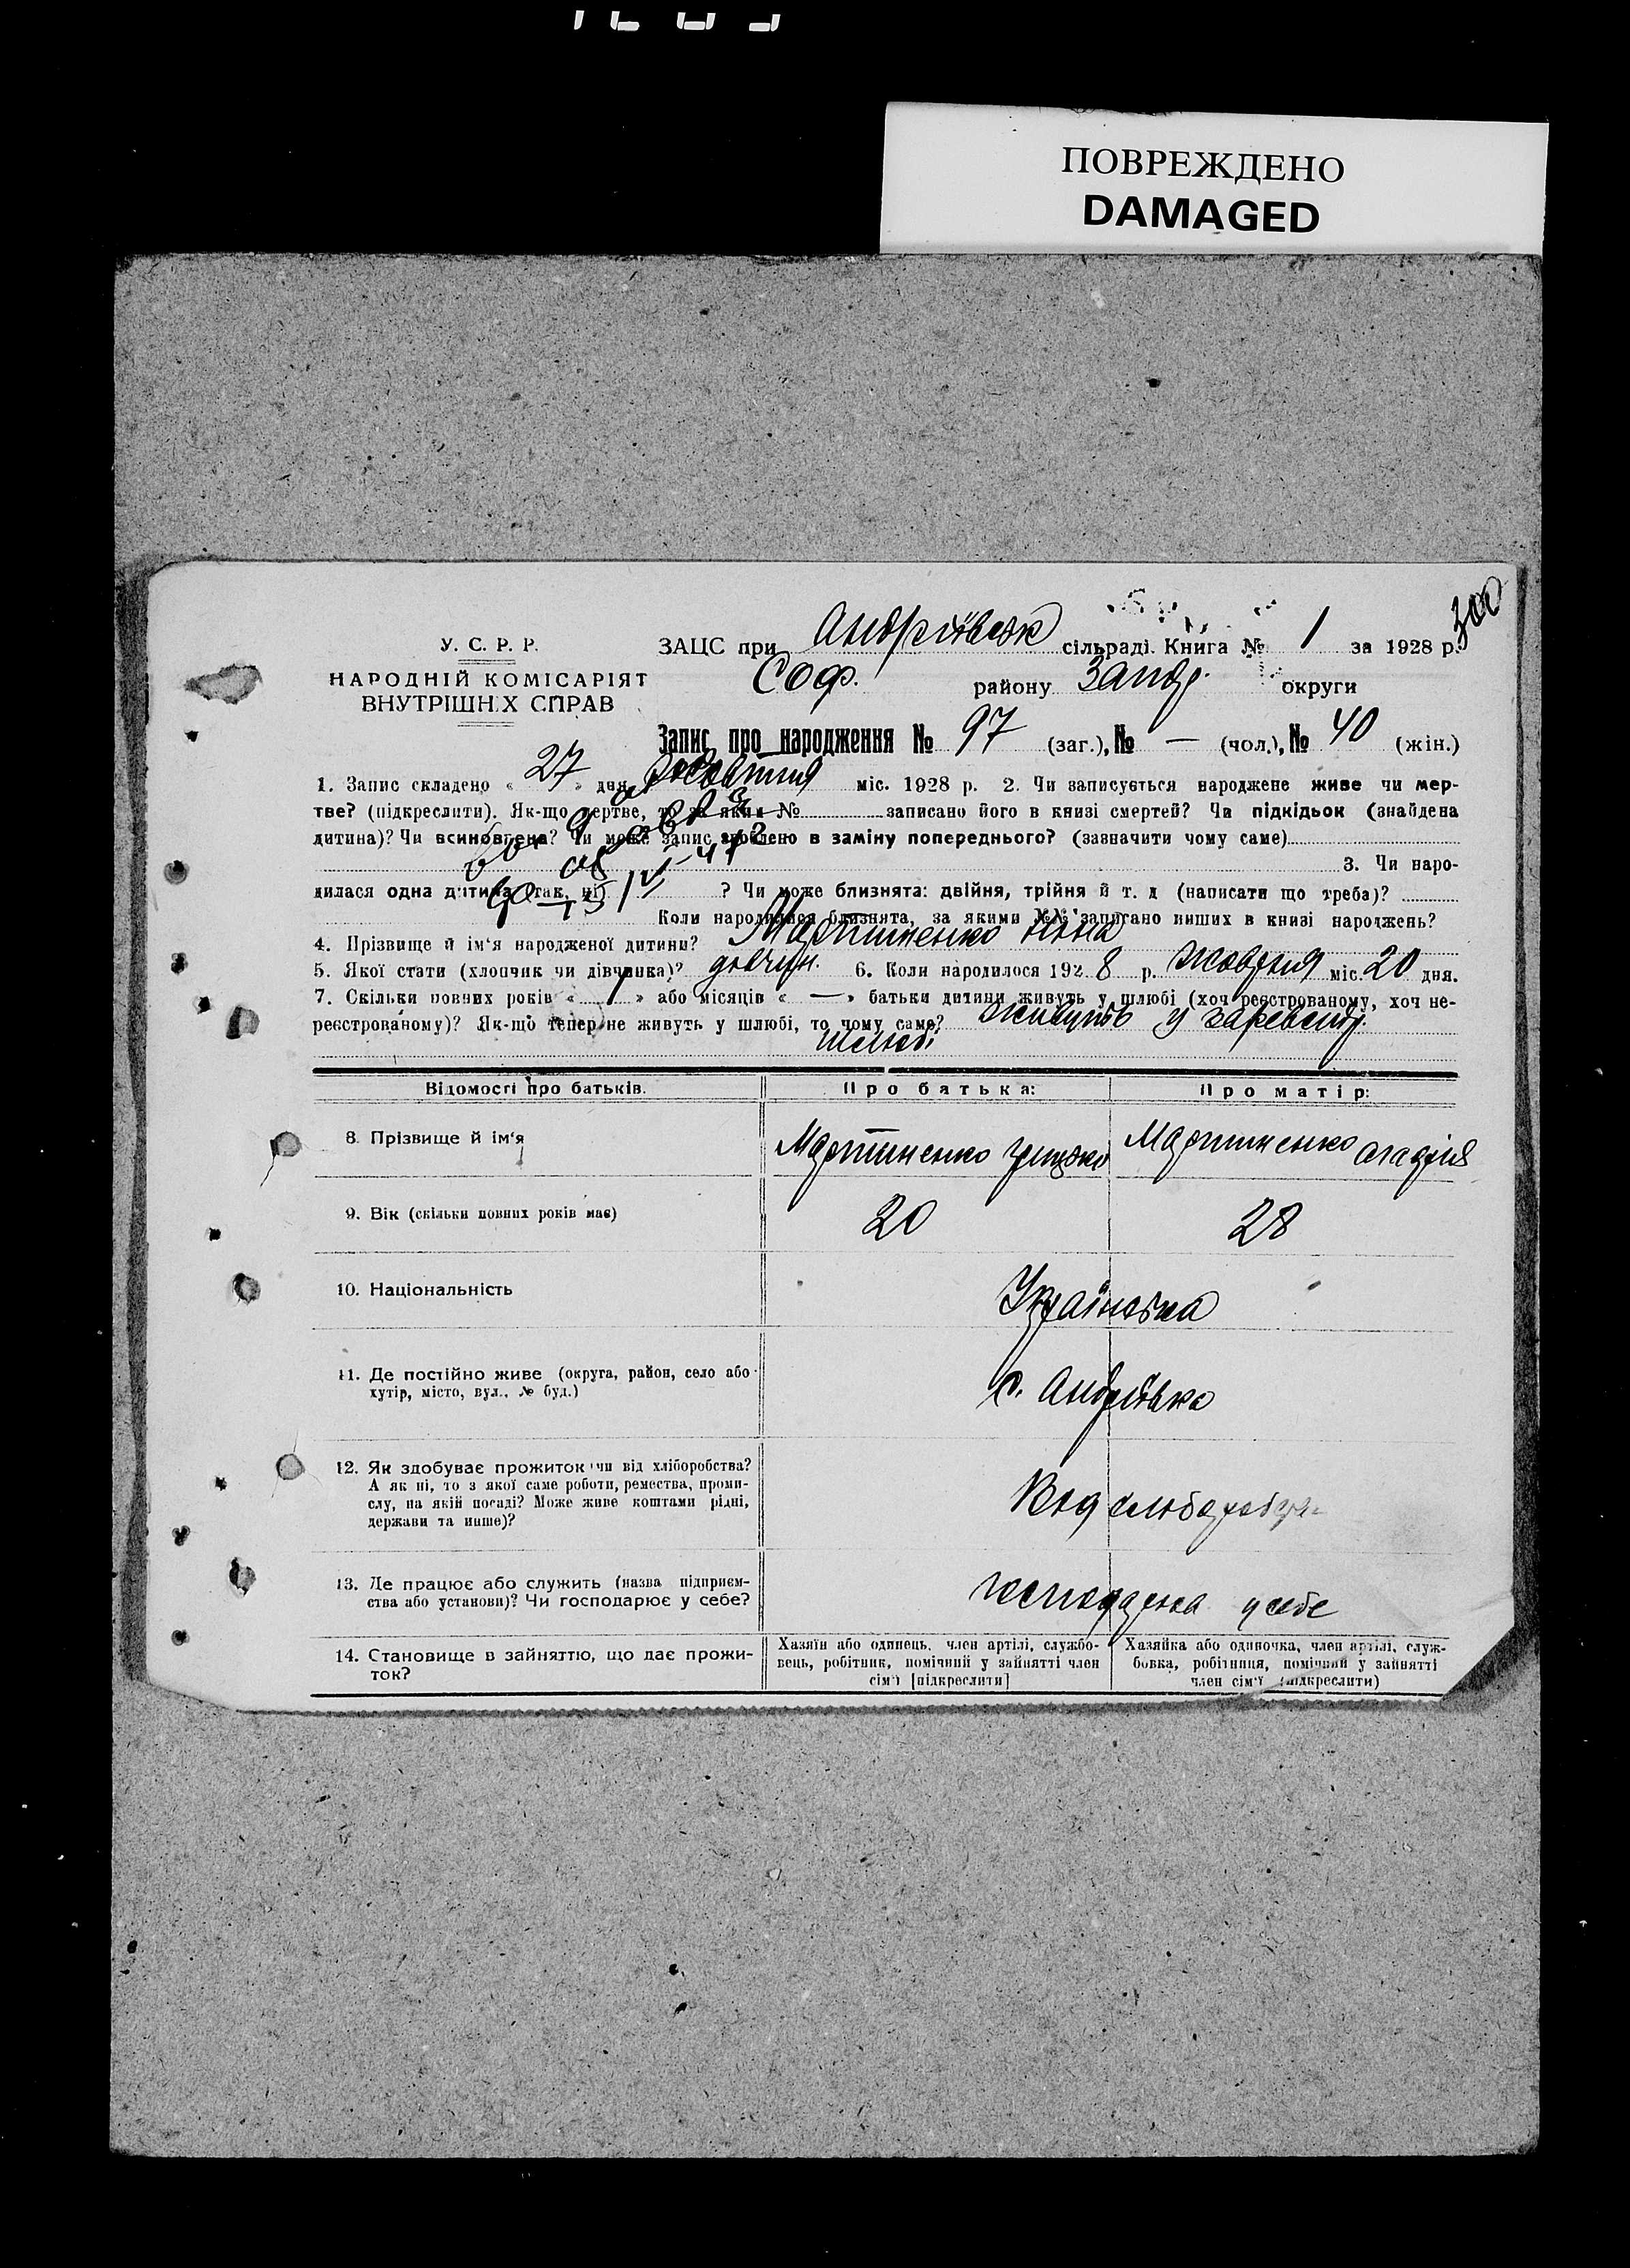 ПОВРЕЖДЕНО
DAMAGED
300
У. С. Р. Р.
НАРОДНІЙ КОМІСАРІЯТ
ВНУТРІШНІХ СПРАВ
ЗАЦС при Андріївськ сільраді. Книга № 1 за 1928 р.
Соф. району Запор. округи
Запис про народження № 97 (заг.), № — (чол.), № 40 (жін.)
1. Запис складено « 27 » дня жовтня міс. 1928 р. 2. Чи записується народжене живе чи мер-
тве? (підкреслити). Як-що мертве, то за яким № записано його в книзі смертей? Чи підкідьок (знайдена
дитина)? Чи всиновлена? Чи може запис зроблено в заміну попереднього? (зазначити чому саме)
3. Чи наро-
дилася одна дитина (так, ні) ? Чи може близнята: двійня, трійня й т. д (написати що треба)?
Коли народилися близнята, за якими №№ записано инших в книзі народжень?
4. Прізвище й ім'я народженої дитини? Мартиненко Ніна
5. Якої стати (хлопчик чи дівчинка)? дівчин. 6. Коли народилося 192 8 р. Жовтня міс. 20 дня.
7. Скільки повних років « 1 » або місяців « — » батьки дитини живуть у шлюбі (хоч реєстрованому, хоч не-
реєстрованому)? Як-що тепер не живуть у шлюбі, то чому саме? живуть у
шлюбі
Відомості про батьків. Про батька: Про матір:
8. Прізвище й ім'я Мартиненко Грицько Мартиненко
9. Вік (скільки повних років має) 20 28
10. Національність Українська
11. Де постійно живе (округа, район, село або
хутір, місто, вул., № буд.) с. Андріївка
12. Як здобуває прожиток чи від хліборобства?
А як ні, то з якої саме роботи, ремества, проми-
слу, на якій посаді? Може живе коштами рідні,
держави та инше)? Від
13. Де працює або служить (назва підприєм-
ства або установи)? Чи господарює у себе? у себе
14. Становище в зайняттю, що дає прожи-
ток?
Хазяїн або одинець, член артілі, службо-
вець, робітник, помічний у зайнятті член
сім'ї [підкреслити]
Хазяйка або одиночка, член артілі, служ-
бовка, робітниця, помічний у зайнятті
член сім'ї (підкреслити)